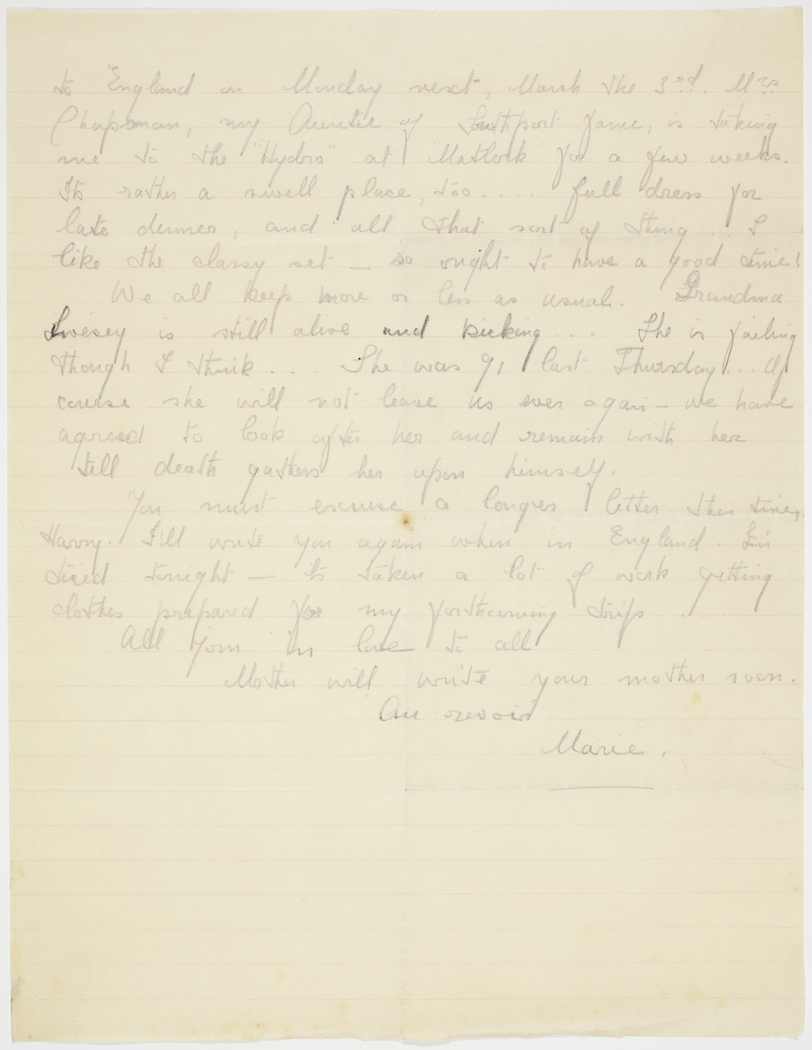 to England on Monday next, March the 3rd. Mrs
Chapman, my Auntie of Southport fame, is taking
me to the "Hydro" at Matlock for a few weeks.
Its rather a swell place, too.... full dress for
late dinner, and all that sort of thing... I
like the classy set — so ought to have a good time!
We all keep more or less as usual. Grandma
Livesey is still alive and kicking.... She is failing
though I think.... She was 91 last Thursday... Of
course she will not leave us ever again — we have
agreed to look after her and remain with her
till death gathers her upon himself.
You must excuse a longer letter this time,
Harry. I'll write you again when in England. I'm
tired tonight — its taken a lot of work getting
clothes prepared for my forthcoming trip....
All join in love to all
Mother will write your mother soon.
Au revoir
Marie.